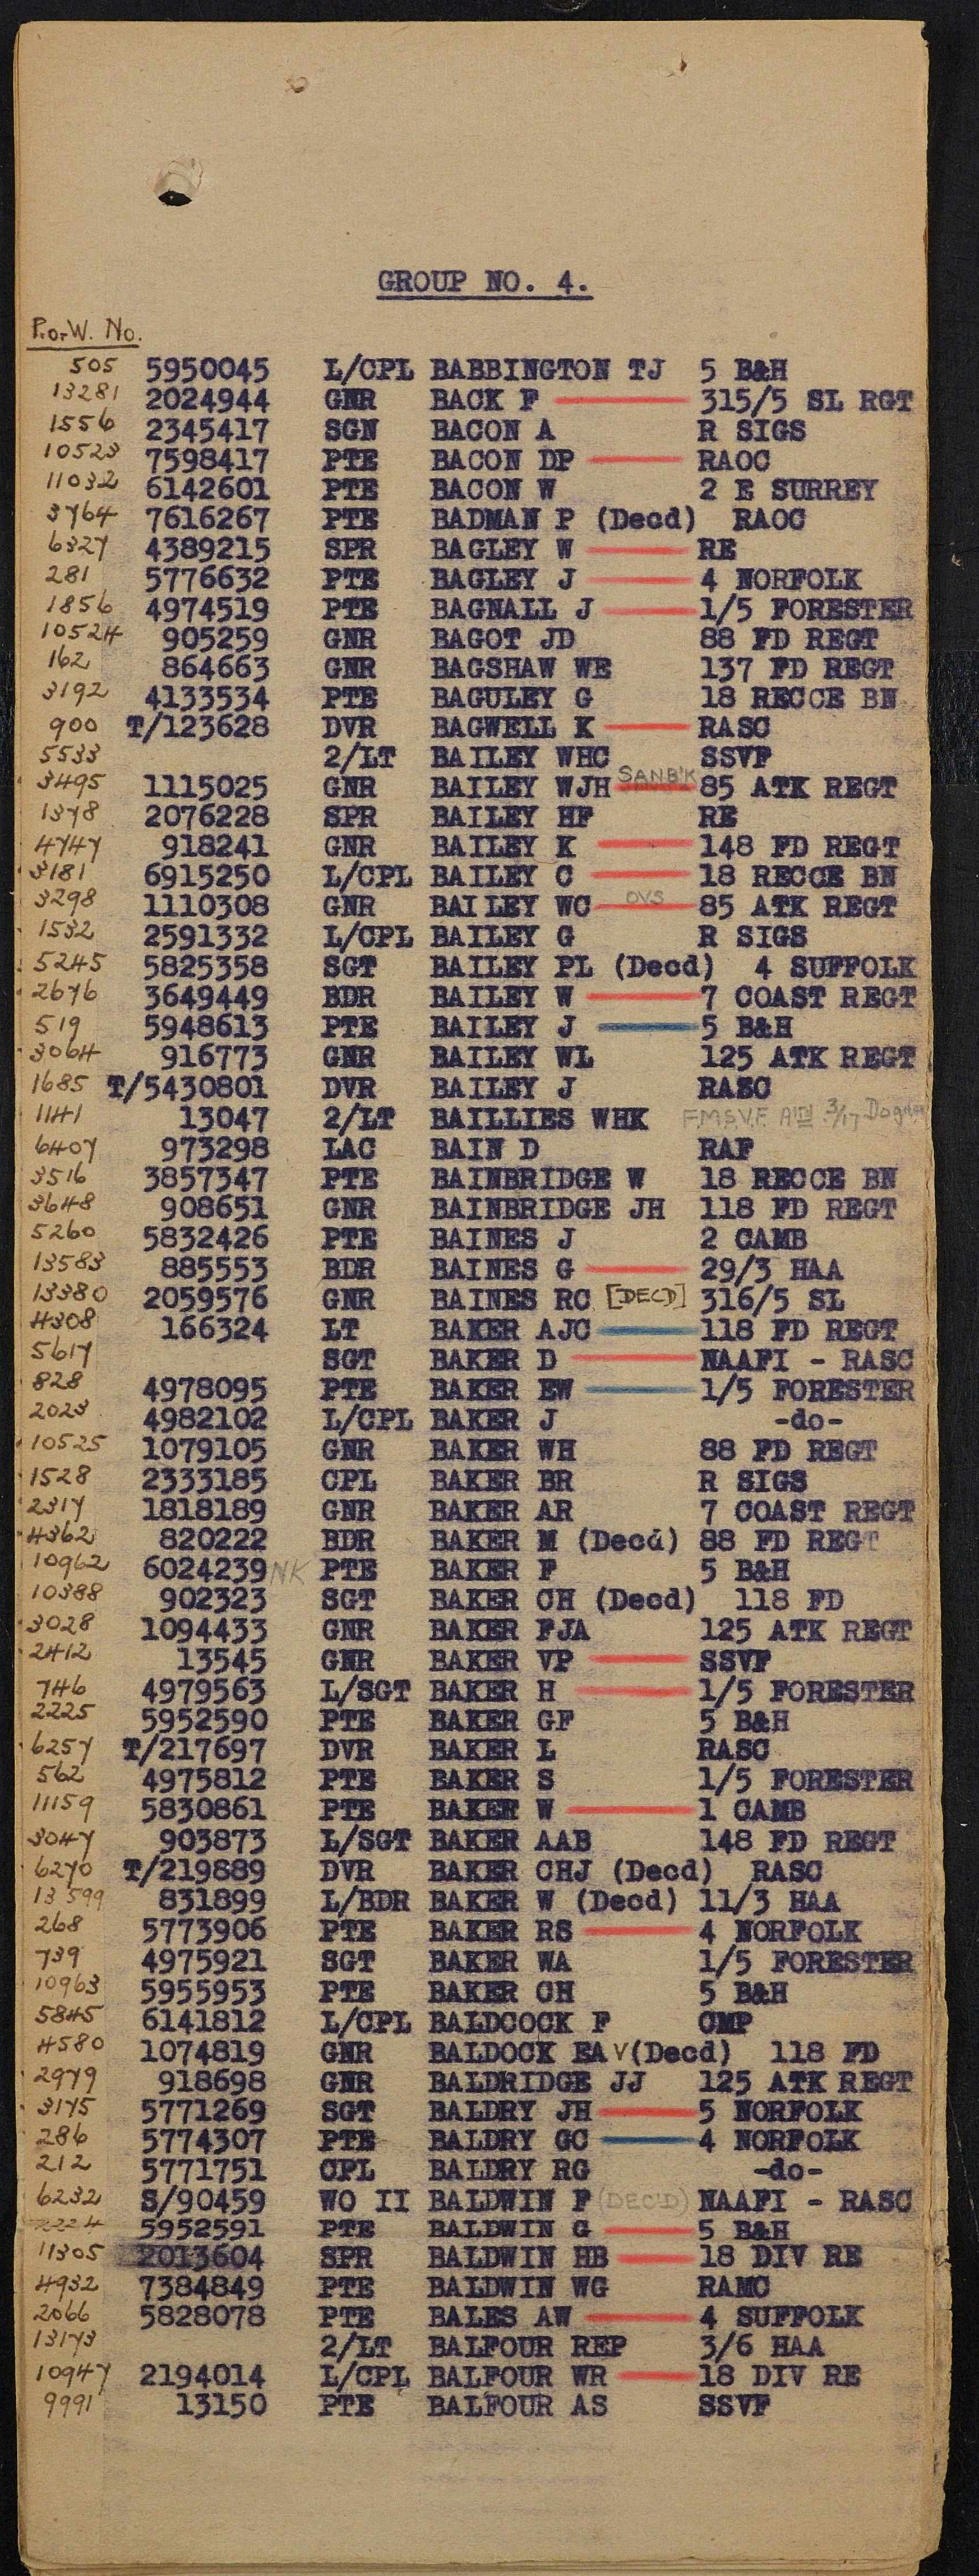 GROUP NO. 4.
P.o.W. No.
505 5950045 L/CPL BABBINGTON TJ 5 B&H
13281 2024944 GNR BACK F 315/5 SL RGT
1556 2345417 SGN BACON A R SIGS
10523 7598417 PTE BACON DP RAOC
11032 6142601 PTE BACON W 2 E SURREY
3764 7616267 PTE BADMAN P (Decd) RAOC
6327 4389215 SPR BAGLEY W RE
281 5776632 PTE BAGLEY J 4 NORFOLK
1856 4974519 PTE BAGNALL J 1/5 FORESTER
10524 905259 GNR BAGOT JD 88 FD REGT
162 864663 GNR BAGSHAW WE 137 FD REGT
3192 4133534 PTE BAGULEY G 18 RECCE BN
900 T/123628 DVR BAGWELL K RASC
5533 2/LT BAILEY WHC SSVF
3495 1115025 GNR BAILEY WJH SANB'K 85 ATK REGT
1378 2076228 SPR BAILEY HF RE
4747 918241 GNR BAILEY K 148 FD REGT
3181 6915250 L/CPL BAILEY C 18 RECCE BN
3298 1110308 GNR BAILEY WC OVS 85 ATK REGT
1532 2591332 L/CPL BAILEY G R SIGS
5245 5825358 SGT BAILEY PL (Decd) 4 SUFFOLK
2676 3649449 BDR BAILEY W 7 COAST REGT
519 5948613 PTE BAILEY J 5 B&H
3064 916773 GNR BAILEY WL 125 ATK REGT
1685 T/5430801 DVR BAILEY J RASC
1141 13047 2/LT BAILLIES WHK F.M.S.V.F. 3/17
6407 973298 LAC BAIN D RAF
3516 3857347 PTE BAINBRIDGE W 18 RECCE BN
3648 908651 GNR BAINBRIDGE JH 118 FD REGT
5260 5832426 PTE BAINES J 2 CAMB
13583 885553 BDR BAINES G 29/3 HAA
13380 2059576 GNR BAINES RC [DECD] 316/5 SL
4308 166324 LT BAKER AJC 118 FD REGT
5617 SGT BAKER D NAAFI - RASC
828 4978095 PTE BAKER EW 1/5 FORESTER
2023 4982102 L/CPL BAKER J -do-
10525 1079105 GNR BAKER WH 88 FD REGT
1528 2333185 CPL BAKER BR R SIGS
2317 1818189 GNR BAKER AR 7 COAST REGT
4362 820222 BDR BAKER M (Decd) 88 FD REGT
10962 6024239 NK PTE BAKER F 5 B&H
10388 902323 SGT BAKER CH (Decd) 118 FD
3028 1094433 GNR BAKER FJA 125 ATK REGT
2412 13545 GNR BAKER VP SSVF
746 4979563 L/SGT BAKER H 1/5 FORESTER
2225 5952590 PTE BAKER GF 5 B&H
6257 T/217697 DVR BAKER L RASC
562 4975812 PTE BAKER S 1/5 FORESTER
11159 5830861 PTE BAKER W 1 CAMB
3047 903873 L/SGT BAKER AAB 148 FD REGT
6270 T/219889 DVR BAKER CHJ (Decd) RASC
13599 831899 L/BDR BAKER W (Decd) 11/3 HAA
268 5773906 PTE BAKER RS 4 NORFOLK
739 4975921 SGT BAKER WA 1/5 FORESTER
10963 5955953 PTE BAKER CH 5 B&H
5845 6141812 L/CPL BALDCOCK F CMP
4580 1074819 GNR BALDOCK EA V (Decd) 118 FD
2979 918698 GNR BALDRIDGE JJ 125 ATK REGT
3175 5771269 SGT BALDRY JH 5 NORFOLK
286 5774307 PTE BALDRY GC 4 NORFOLK
212 5771751 CPL BALDRY RG -do-
6232 S/90459 WO II BALDWIN F (DEC'D) NAAFI - RASC
2224 5952591 PTE BALDWIN G 5 B&H
11305 2013604 SPR BALDWIN HB 18 DIV RE
4932 7384849 PTE BALDWIN WG RAMC
2066 5828078 PTE BALES AW 4 SUFFOLK
13173 2/LT BALFOUR REP 3/6 HAA
10947 2194014 L/CPL BALFOUR WR 18 DIV RE
9991 13150 PTE BALFOUR AS SSVF